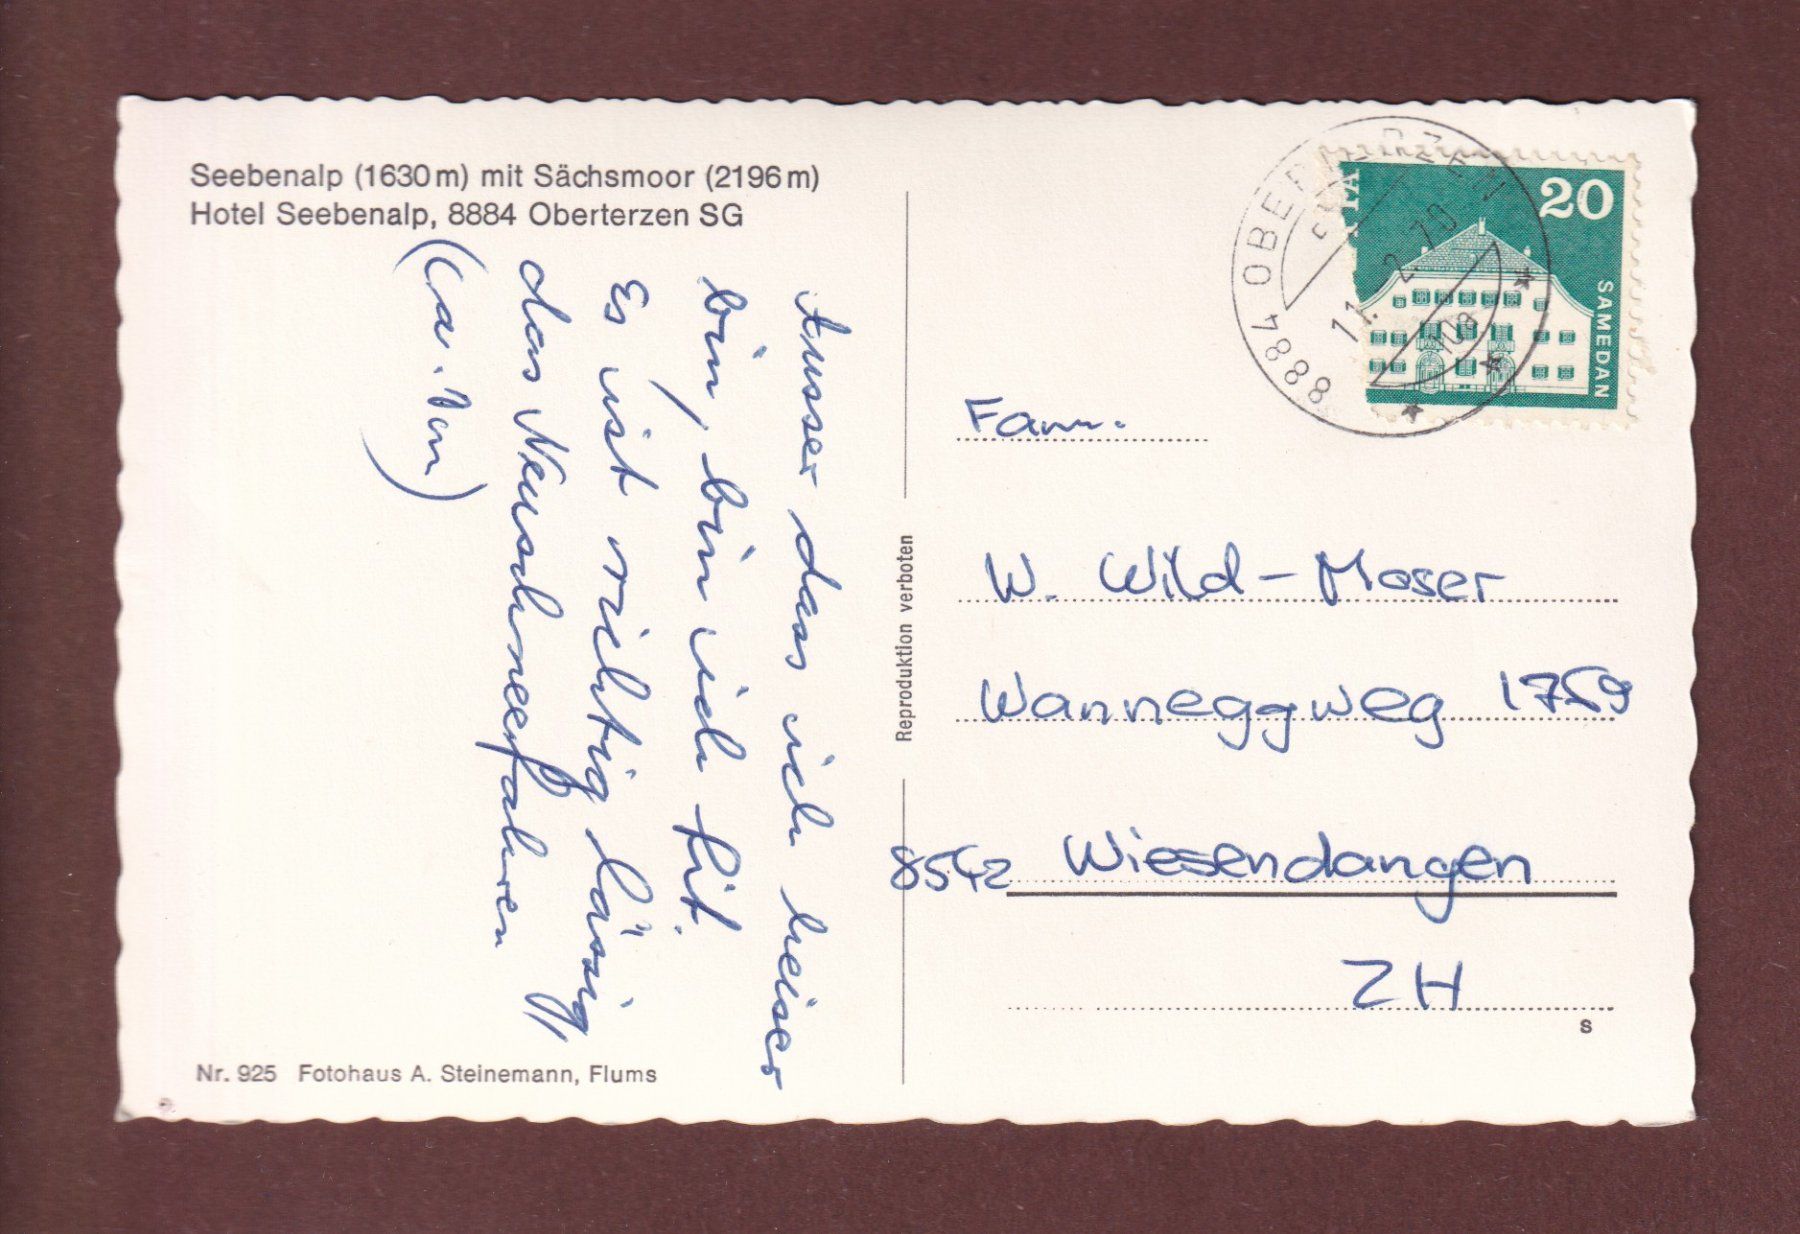 Seebenalp (1630 m) mit Sächsmoor (2196 m)
Hotel Seebenalp, 8884 Oberterzen SG
Ausser dass ich heiser
bin, bin ich fit.
Es ist richtig lässig,
das Neuschneefahren
(ca. 1/2 m)
Nr. 925 Fotohaus A. Steinemann, Flums
Reproduktion verboten
8884 OBERTERZEN
11. 2. 70
10
20
SAMEDAN
Fam.
W. Wild-Moser
Wanneggweg 1759
8542 Wiesendangen
ZH
S